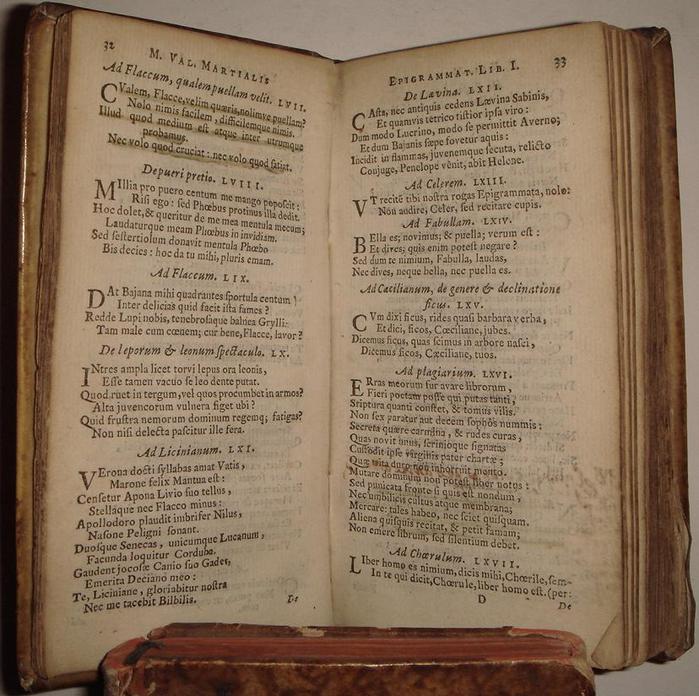 32
M. VAL. MARTIALIS
Ad Flaccum, qualem puellam velit. LVII.
CValem, Flacce, velim quæris, nolimve puellam?
Nolo nimis facilem, difficilemque nimis.
Illud quod medium est atque inter utrumque
probamus.
Nec volo quod cruciat: nec volo quod satiat.
De pueri pretio. LVIII.
MIllia pro puero centum me mango poposcit:
Risi ego: sed Phœbus protinus illa dedit.
Hoc dolet, & queritur de me mea mentula mecum;
Laudaturque meam Phœbus in invidiam.
Sed sestertiolum donavit mentula Phœbo
Bis decies: hoc da tu mihi, pluris emam.
Ad Flaccum. LIX.
DAt Bajana mihi quadrantes sportula centum!
Inter delicias quid facit ista fames?
Redde Lupi nobis, tenebrosaque balnea Grylli:
Tam male cum cœnem; cur bene, Flacce, lavor?
De leporum & leonum spectaculo. LX.
INtres ampla licet torvi lepus ora leonis,
Esse tamen vacuo se leo dente putat.
Quod ruet in tergum, vel quos procumbet in armos?
Alta juvencorum vulnera figet ubi?
Quid frustra nemorum dominum regemq; fatigas?
Non nisi delecta pascitur ille fera.
Ad Licinianum. LXI.
VErona docti syllabas amat Vatis,
Marone felix Mantua est:
Censetur Apona Livio suo tellus,
Stellaque nec Flacco minus:
Apollodoro plaudit imbrifer Nilus,
Nasone Peligni sonant.
Duosque Senecas, unicumque Lucanum,
Facunda loquitur Corduba.
Gaudent jocosæ Canio suo Gades,
Emerita Deciano meo:
Te, Liciniane, gloriabitur nostra
Nec me tacebit Bilbilis.
De
EPIGRAMMAT. LIB. I. 33
De Lævina. LXII.
CAsta, nec antiquis cedens Lævina Sabinis,
Et quamvis tetrico tistior ipsa viro:
Dum modo Lucrino, modo se permittit Averno;
Et dum Bajanis sæpe fovetur aquis:
Incidit in flammas, juvenemque secuta, relicto
Conjuge, Penelope venit, abit Helene.
Ad Celerem. LXIII.
VT recitē tibi nostra rogas Epigrammata, nolo:
Non audire, Celer, sed recitare cupis.
Ad Fabullam. LXIV.
BElla es; novimus; & puella; verum est:
Et dives; quis enim potest negare?
Sed dum te nimium, Fabulla, laudas,
Nec dives, neque bella, nec puella es.
Ad Cæcilianum, de genere & declinatione
ficus. LXV.
CVm dixi ficus, rides quasi barbara verba,
Et dici, ficos, Cæciliane, jubes.
Dicemus ficus, quas scimus in arbore nasci,
Dicemus ficos, Cæciliane, tuos.
Ad plagiarium. LXVI.
ERras meorum fur avare librorum,
Fieri poetam posse qui putas tanti,
Scriptura quanti constet, & tomus vilis.
Non sex paratur aut decem sophos nummis:
Secreta quære carmina, & rudes curas,
Quas novit unus, scrinioque signatas
Custodit ipse virginis pater chartæ;
Quæ trita duro non inhorruit mento.
Mutare dominum non potest liber notus:
Sed pumicata fronte si quis est nondum,
Nec umbilicis cultus atque membrana;
Mercare: tales habeo, nec sciet quisquam.
Aliena quisquis recitat, & petit famam;
Non emere librum, sed silentium debet.
Ad Chœrulum. LXVII.
LIber homo es nimium, dicis mihi, Chœrile, sem-
In te qui dicit, Chœrule, liber homo est. (per:
D
De